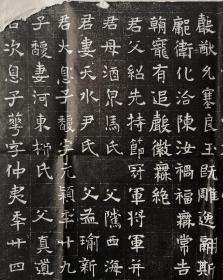 猷允塞良玉既雕逸翮斯
衛化洽陳汝禍福無常吉
翰寵有追徽無絕
君父紹先持節冠軍將軍并
君母酒泉馬氏 父隴西海
君妻天水尹氏 父孟瑜新
君大息子馥字元穎年廿九
子馥妻河東柳氏 父真道
君次息子華字仲夷年廿四